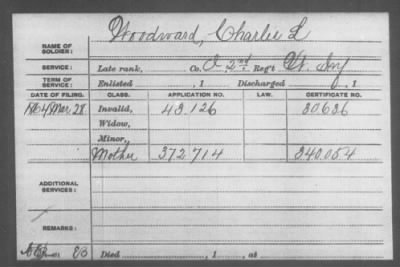 Woodward, Charlie L
NAME OF SOLDIER:
SERVICE: Late rank, Co. I, 2nd Reg't Vt. Inf
TERM OF SERVICE: Enlisted , 1 Discharged , 1
DATE OF FILING. CLASS. APPLICATION NO. LAW. CERTIFICATE NO.
1864 Mar. 28 Invalid, 43.126 30636
Widow,
Minor,
Mother 372714 340.054
ADDITIONAL SERVICES:
REMARKS:
Died , 1 , at